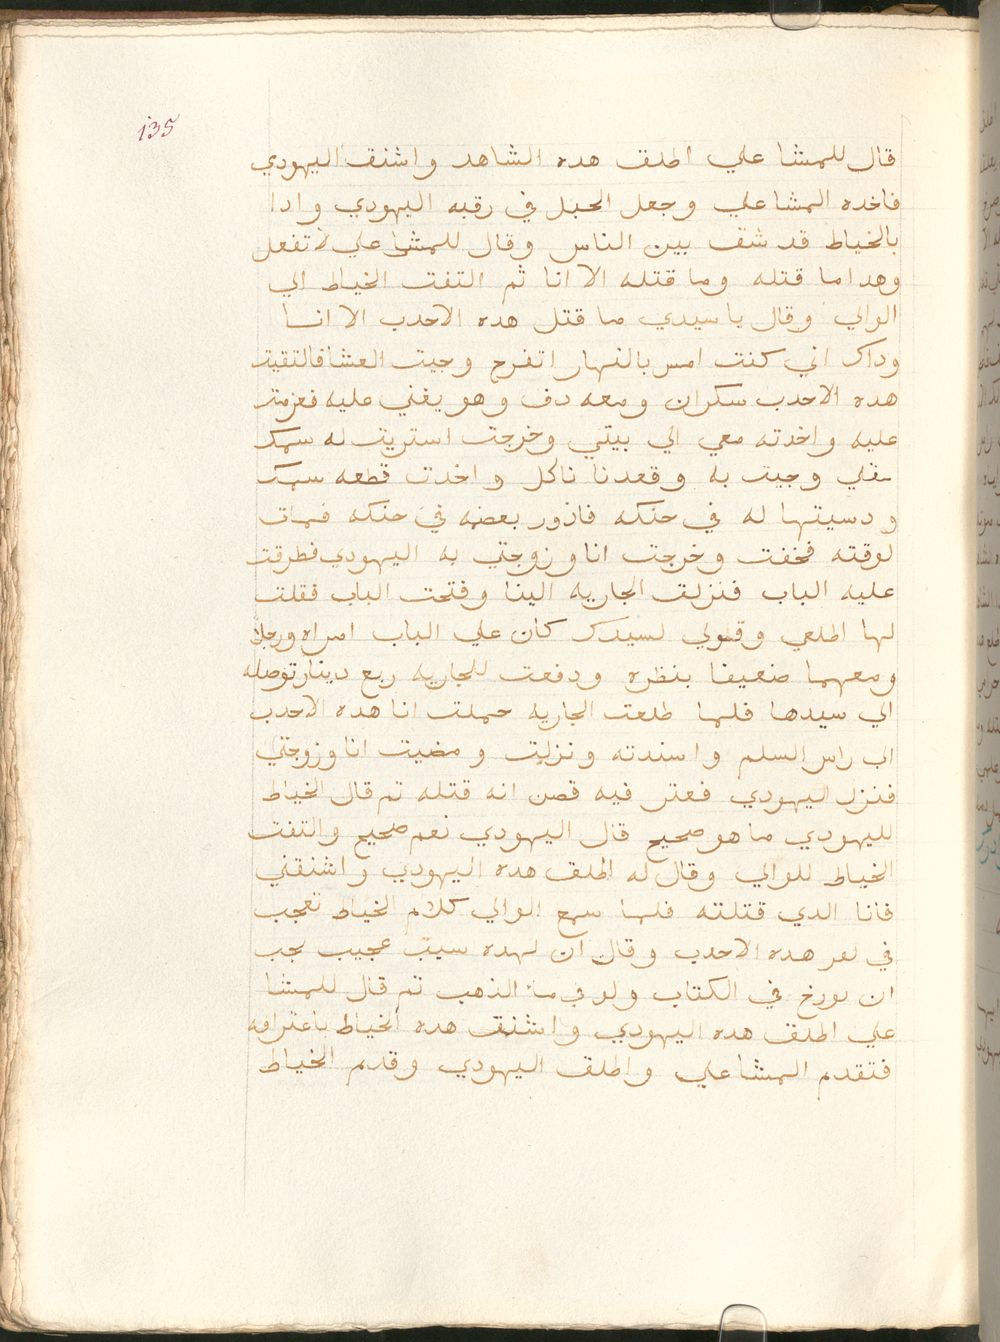 135
قال للمشا علي اطلق هده الشاهد واشنق اليهودي
فاخده المشاعلي وجعل الحبل في رقبه اليهودي وادا
بالخياط قد شق بين الناس وقال للمشاعلي لا تفعل
وهدا ما قتله وما قتله الا انا ثم التفت الخياط الي
الوالي وقال يا سيدي ما قتل هده الاحدب الا انا
وداك اني كنت امس بالنهار اتفرج وجيت العشا فالتقيت
هده الاحدب سكران ومعه دف وهو يغني عليه فعزمت
عليه واخدته معي الي بيتي وخرجت استريت له سمك
مقلي وجيت به وقعدنا ناكل واخدت قطعه سمك
ودسيتها له في حنكه فازور بعضه في حنكه فمات
لوقته فخفت وخرجت انا وزوجتي به اليهودي فطرقت
عليه الباب فنزلت الجاريه الينا وفتحت الباب فقلت
لها اطلعي وقولي لسيدك كان علي الباب امراه ورجلا
ومعهما ضعيفا ينظره ودفعت للجاريه ربع دينار توصله
الي سيدها فلما طلعت الجاريه حملت انا هده الاحدب
الي راس السلم واسندته ونزلت ومضيت انا وزوجتي
فنزل اليهودي فعتر فيه فضن انه قتله تم قال الخياط
لليهودي ما هو صحيح قال اليهودي نعم صحيح والتفت
الخياط للوالي وقال له اطلق هده اليهودي واشنقني
فانا الدي قتلته فلما سمع الوالي كلام الخياط تعجب
في هده الاحدب وقال ان لهده سبب عجيب يجب
ان يورخ في الكتاب ولو في ما الذهب تم قال للمشا
علي اطلق هده اليهودي واشنق هده الخياط باعترافه
فتقدم المشاعلي واطلق اليهودي وقدم الخياط